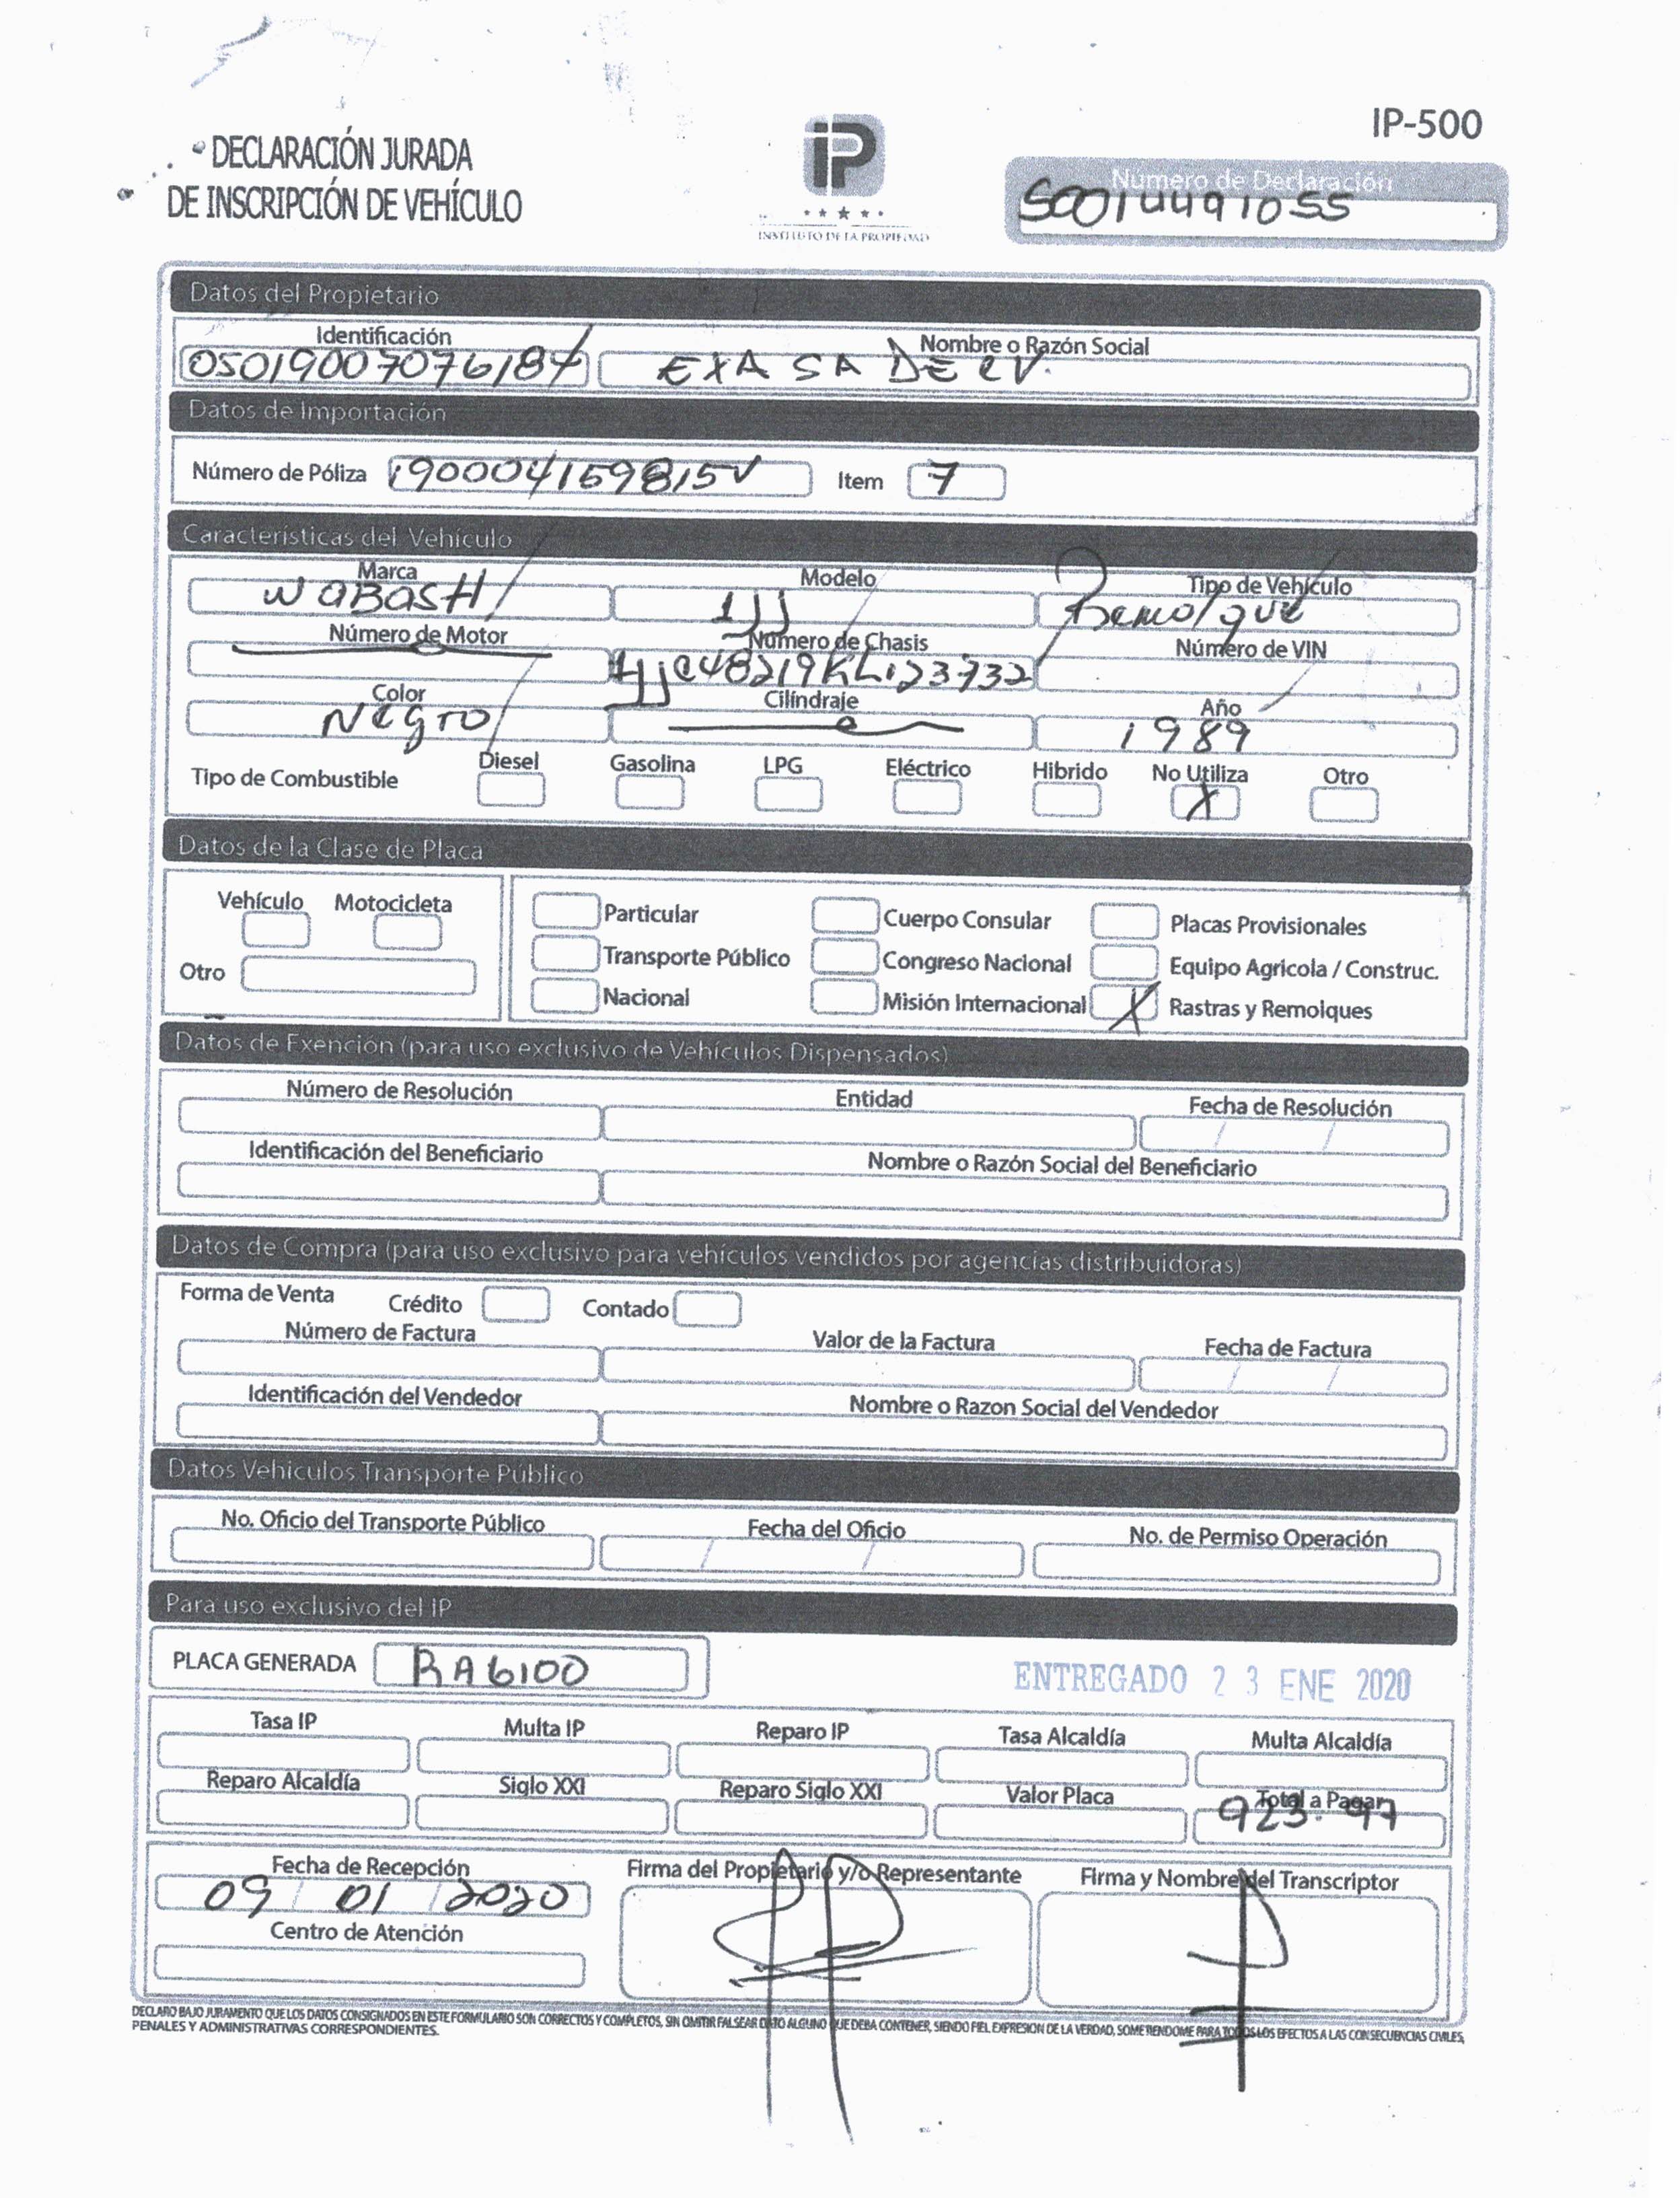 IP-500
DECLARACIÓN JURADA
DE INSCRIPCIÓN DE VEHÍCULO
iP
INSTITUTO DE LA PROPIEDAD
Número de Declaración
S0014491055
Datos del Propietario
Identificación Nombre o Razón Social
EXA SA DE CV.
Datos de Importación
Número de Póliza Item 7
Características del Vehículo
Marca Modelo Tipo de Vehículo
WABASH 1JJ Remolque
Número de Motor Número de Chasis Número de VIN
Color Cilíndraje Año
Negro 1989
Tipo de Combustible Diesel Gasolina LPG Eléctrico Hibrido No Utiliza Otro
X
Datos de la Clase de Placa
Vehículo Motocicleta
Otro
Particular Cuerpo Consular Placas Provisionales
Transporte Público Congreso Nacional Equipo Agricola / Construc.
Nacional Misión Internacional X Rastras y Remolques
Datos de Exención (para uso exclusivo de Vehículos Dispensados)
Número de Resolución Entidad Fecha de Resolución
/ /
Identificación del Beneficiario Nombre o Razón Social del Beneficiario
Datos de Compra (para uso exclusivo para vehículos vendidos por agencias distribuidoras)
Forma de Venta Crédito Contado
Número de Factura Valor de la Factura Fecha de Factura
/ /
Identificación del Vendedor Nombre o Razon Social del Vendedor
Datos Vehículos Transporte Público
No. Oficio del Transporte Público Fecha del Oficio No. de Permiso Operación
/ /
Para uso exclusivo del IP
PLACA GENERADA RA6100
ENTREGADO 23 ENE 2020
Tasa IP Multa IP Reparo IP Tasa Alcaldía Multa Alcaldía
Reparo Alcaldía Siglo XXI Reparo Siglo XXI Valor Placa Total a Pagar
923.97
Fecha de Recepción Firma del Propietario y/o Representante Firma y Nombre del Transcriptor
09 / 01 / 2020
Centro de Atención
DECLARO BAJO JURAMENTO QUE LOS DATOS CONSIGNADOS EN ESTE FORMULARIO SON CORRECTOS Y COMPLETOS, SIN OMITIR FALSEAR DATO ALGUNO QUE DEBA CONTENER, SIENDO FIEL EXPRESION DE LA VERDAD, SOMETIENDOME PARA TODOS LOS EFECTOS A LAS CONSECUENCIAS CIVILES,
PENALES Y ADMINISTRATIVAS CORRESPONDIENTES.